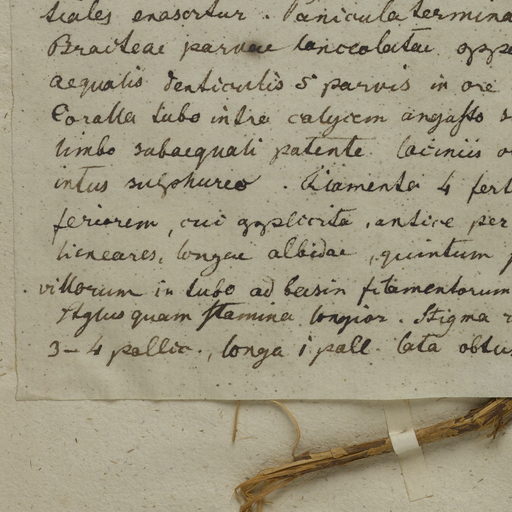 tiales enascitur. Panicula termina
Bracteae parvae lanceolatae oppo
aequalis denticulis 5 parvis in ore
Corolla tubo intra calycem angusto s
limbo subaequali patente laciniis o
intus sulphureo. Filamenta 4 fert
feriorem, cui applicita, antice per
lieneares, longae albidae, quintum p
villorum in tubo ad basin filamentorum
Stylus quam stamina longior. Stigma
3-4 pollic., longa 1 poll. lata obtus